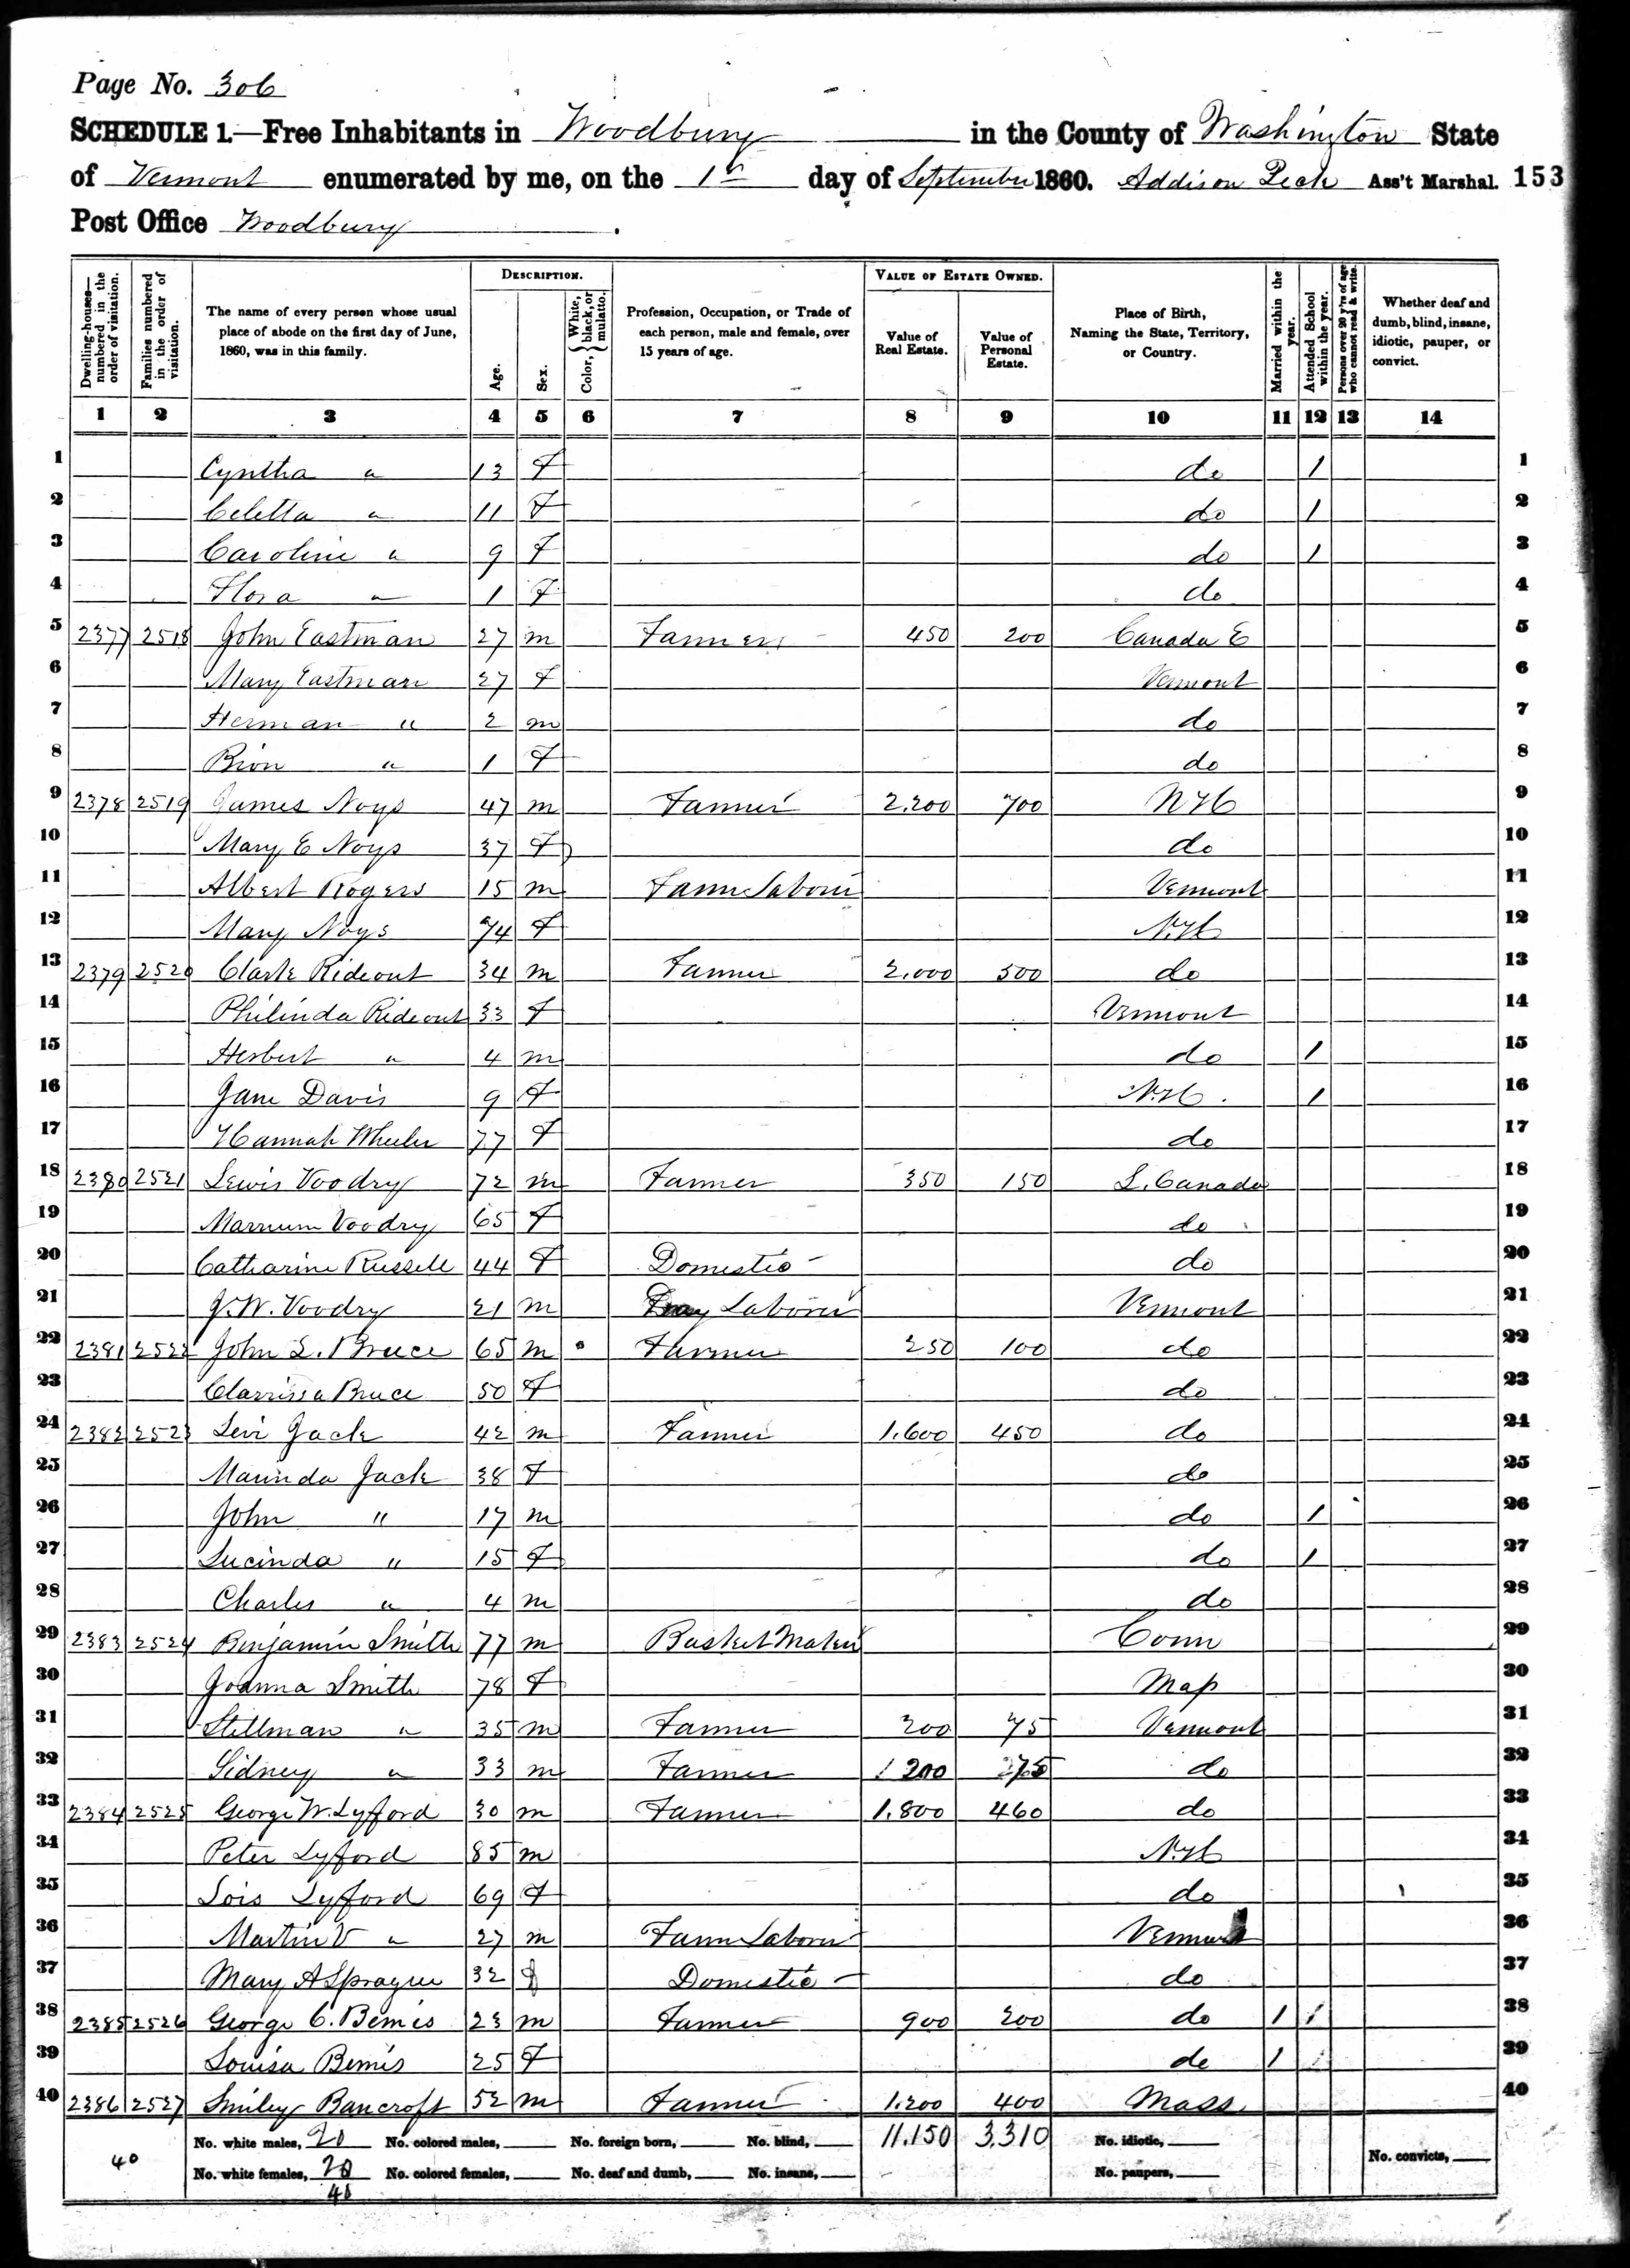 Page No. 306
SCHEDULE 1.—Free Inhabitants in Woodbury in the County of Washington State
of Vermont enumerated by me, on the 1st day of September 1860. Addison Peck Ass't Marshal. 153
Post Office Woodbury.
Dwelling-houses—numbered in the order of visitation. Families numbered in the order of visitation. The name of every person whose usual place of abode on the first day of June, 1860, was in this family. DESCRIPTION. Age. Sex. Color, {White, black, or mulatto. Profession, Occupation, or Trade of each person, male and female, over 15 years of age. VALUE OF ESTATE OWNED. Value of Real Estate. Value of Personal Estate. Place of Birth, Naming the State, Territory, or Country. Married within the year. Attended School within the year. Persons over 20 y'rs of age who cannot read & write. Whether deaf and dumb, blind, insane, idiotic, pauper, or convict.
1 2 3 4 5 6 7 8 9 10 11 12 13 14
1 Cyntha " 13 F do 1 1
2 Celetta " 11 F do 1 2
3 Caroline " 9 F do 1 3
4 Flora " 1 F do 4
5 2377 2518 John Eastman 27 m Farmer 450 200 Canada E 5
6 Mary Eastman 27 F Vermont 6
7 Herman " 2 m do 7
8 Bion " 1 F do 8
9 2378 2519 James Noys 47 m Farmer 2.200 700 N H 9
10 Mary E Noys 37 F do 10
11 Albert Rogers 15 m Farm Laborer Vermont 11
12 Mary Noys 74 F N.H 12
13 2379 2520 Clark Rideout 34 m Farmer 2.000 500 do 13
14 Philinda Rideout 33 F Vermont 14
15 Herbert " 4 m do 1 15
16 Jane Davis 9 F N.H. 1 16
17 Hannah Wheeler 77 F do 17
18 2380 2521 Lewis Voodry 72 m Farmer 350 150 L. Canada 18
19 Voodry 65 F do 19
20 Catharine Russell 44 F Domestic 20 do
21 J. W. Voodry 21 m Day Laborer Vermont 21
22 2381 2522 John L. Bruce 65 m Farmer 250 100 do 22
23 Clarrissa Bruce 50 F do 23
24 2382 2523 Levi Jack 42 m Farmer 1.600 450 do 24
25 Marinda Jack 38 F do 25
26 John " 17 m do 1 26
27 Lucinda " 15 F do 1 27
28 Charles " 4 m do 28
29 2383 2524 Benjamin Smith 77 m Basket Maker Conn 29
30 Joanna Smith 78 F Mass 30
31 Stillman " 35 m Farmer 200 75 Vermont 31
32 Sidney " 33 m Farmer 1 200 275 do 32
33 2384 2525 George W. Lyfford 30 m Farmer 1.800 460 do 33
34 Peter Lyfford 85 m N.H 34
35 Lois Lyfford 69 F do 35
36 Martin V " 27 m Farm Laborer Vermont 36
37 Mary A Sprague 32 f Domestic do 37
38 2385 2526 George C. Bemis 23 m Farmer 900 200 do 1 1 38
39 Louisa Bemis 25 F do 1 1 39
40 2386 2527 Smiley Bancroft 52 m Farmer 1.200 400 Mass 40
40 No. white males, 20 No. colored males, No. foreign born, No. blind, 11.150 3.310 No. idiotic,
No. white females, 20 No. colored females, No. deaf and dumb, No. insane, No. paupers, No. convicts,
40